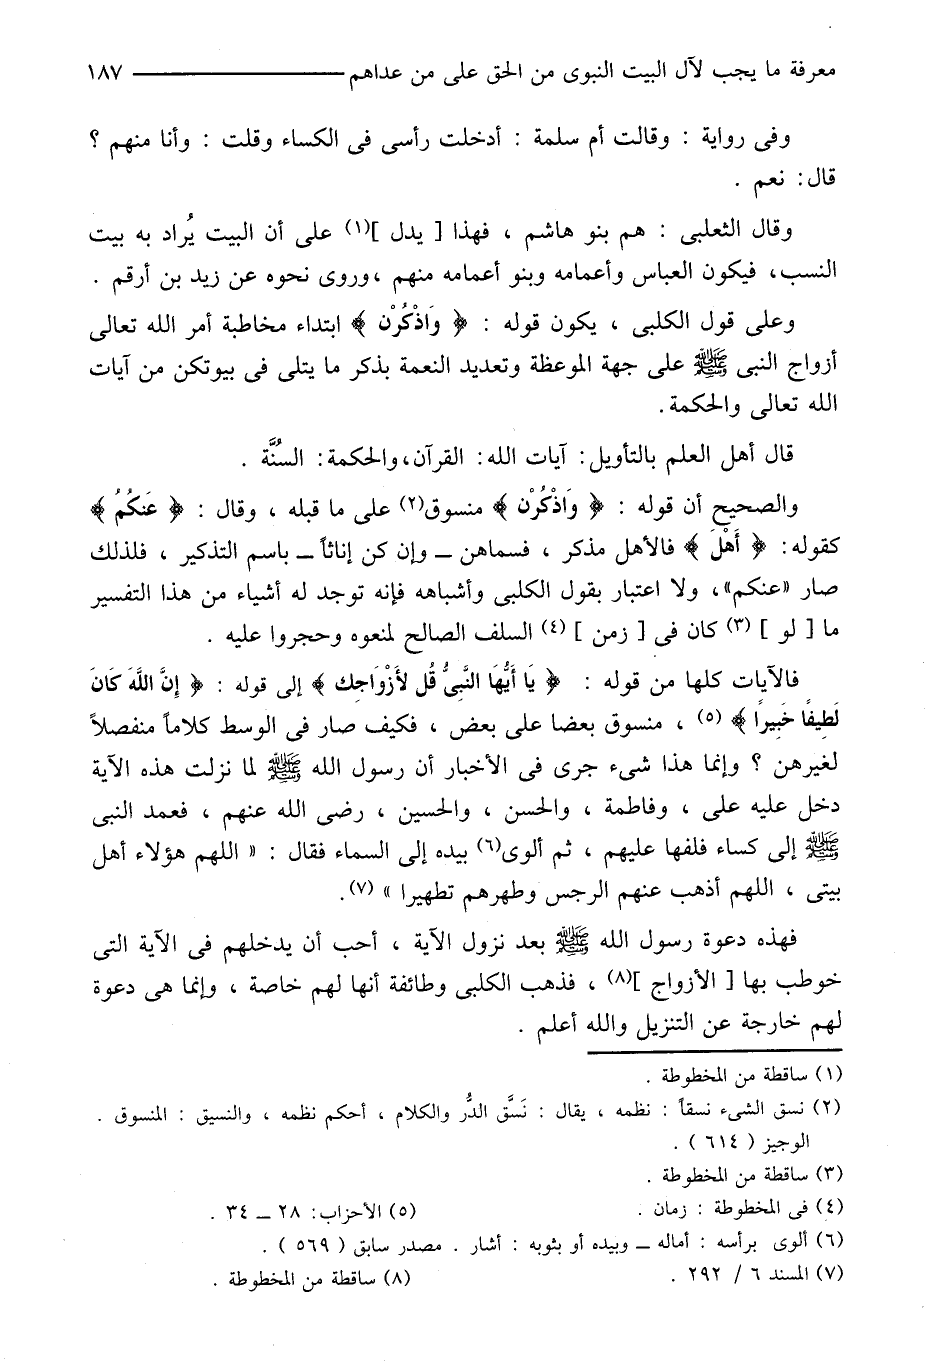 معرفة ما يجب لآل البيت النبوى من الحق على من عداهم ـــــــــــــ ١٨٧
وفى رواية : وقالت أم سلمة : أدخلت رأسى فى الكساء وقلت : وأنا منهم ؟
قال : نعم .
وقال الثعلبى : هم بنو هاشم ، فهذا [ يدل ](١) على أن البيت يُراد به بيت
النسب، فيكون العباس وأعمامه وبنو أعمامه منهم ،وروى نحوه عن زيد بن أرقم .
وعلى قول الكلبى ، يكون قوله : ﴿ وَاذْكُرْن ﴾ ابتداء مخاطبة أمر الله تعالى
أزواج النبى ﷺ على جهة الموعظة وتعديد النعمة بذكر ما يتلى فى بيوتكن من آيات
الله تعالى والحكمة.
قال أهل العلم بالتأويل: آيات الله: القرآن،والحكمة: السنُّة .
والصحيح أن قوله : ﴿ وَاذْكُرْن ﴾ منسوق(٢) على ما قبله ، وقال : ﴿ عَنكُمُ ﴾
كقوله: ﴿ أَهْلَ ﴾ فالأهل مذكر ، فسماهن ــ وإن كن إناثاً ــ باسم التذكير ، فلذلك
صار «عنكم»، ولا اعتبار بقول الكلبى وأشباهه فإنه توجد له أشياء من هذا التفسير
ما [ لو ] (٣) كان فى [ زمن ] (٤) السلف الصالح لمنعوه وحجروا عليه .
فالآيات كلها من قوله : ﴿ يَا أَيُّهَا النَّبِىُّ قُل لأَزْوَاجِك ﴾ إلى قوله : ﴿ إِنَّ اللَّهَ كَانَ
لَطِيفًا خَبِيرًا ﴾ (٥) ، منسوق بعضا على بعض ، فكيف صار فى الوسط كلاماً منفصلاً
لغيرهن ؟ وإنما هذا شىء جرى فى الأخبار أن رسول الله ﷺ لما نزلت هذه الآية
دخل عليه على ، وفاطمة ، والحسن ، والحسين ، رضى الله عنهم ، فعمد النبى
ﷺ إلى كساء فلفها عليهم ، ثم ألوى(٦) بيده إلى السماء فقال : « اللهم هؤلاء أهل
بيتى ، اللهم أذهب عنهم الرجس وطهرهم تطهيرا » (٧).
فهذه دعوة رسول الله ﷺ بعد نزول الآية ، أحب أن يدخلهم فى الآية التى
خوطب بها [ الأزواج ](٨) ، فذهب الكلبى وطائفة أنها لهم خاصة ، وإنما هى دعوة
لهم خارجة عن التنزيل والله أعلم .
(١) ساقطة من المخطوطة .
(٢) نسق الشىء نسقاً : نظمه ، يقال : نَسَّق الدُّر والكلام ، أحكم نظمه ، والنسيق : المنسوق .
الوجيز ( ٦١٤ ) .
(٣) ساقطة من المخطوطة .
(٤) فى المخطوطة : زمان . (٥) الأحزاب: ٢٨ ــ ٣٤ .
(٦) ألوى برأسه : أماله ــ وبيده أو بثوبه : أشار . مصدر سابق ( ٥٦٩ ) .
(٧) المسند ٦ / ٢٩٢ . (٨) ساقطة من المخطوطة .